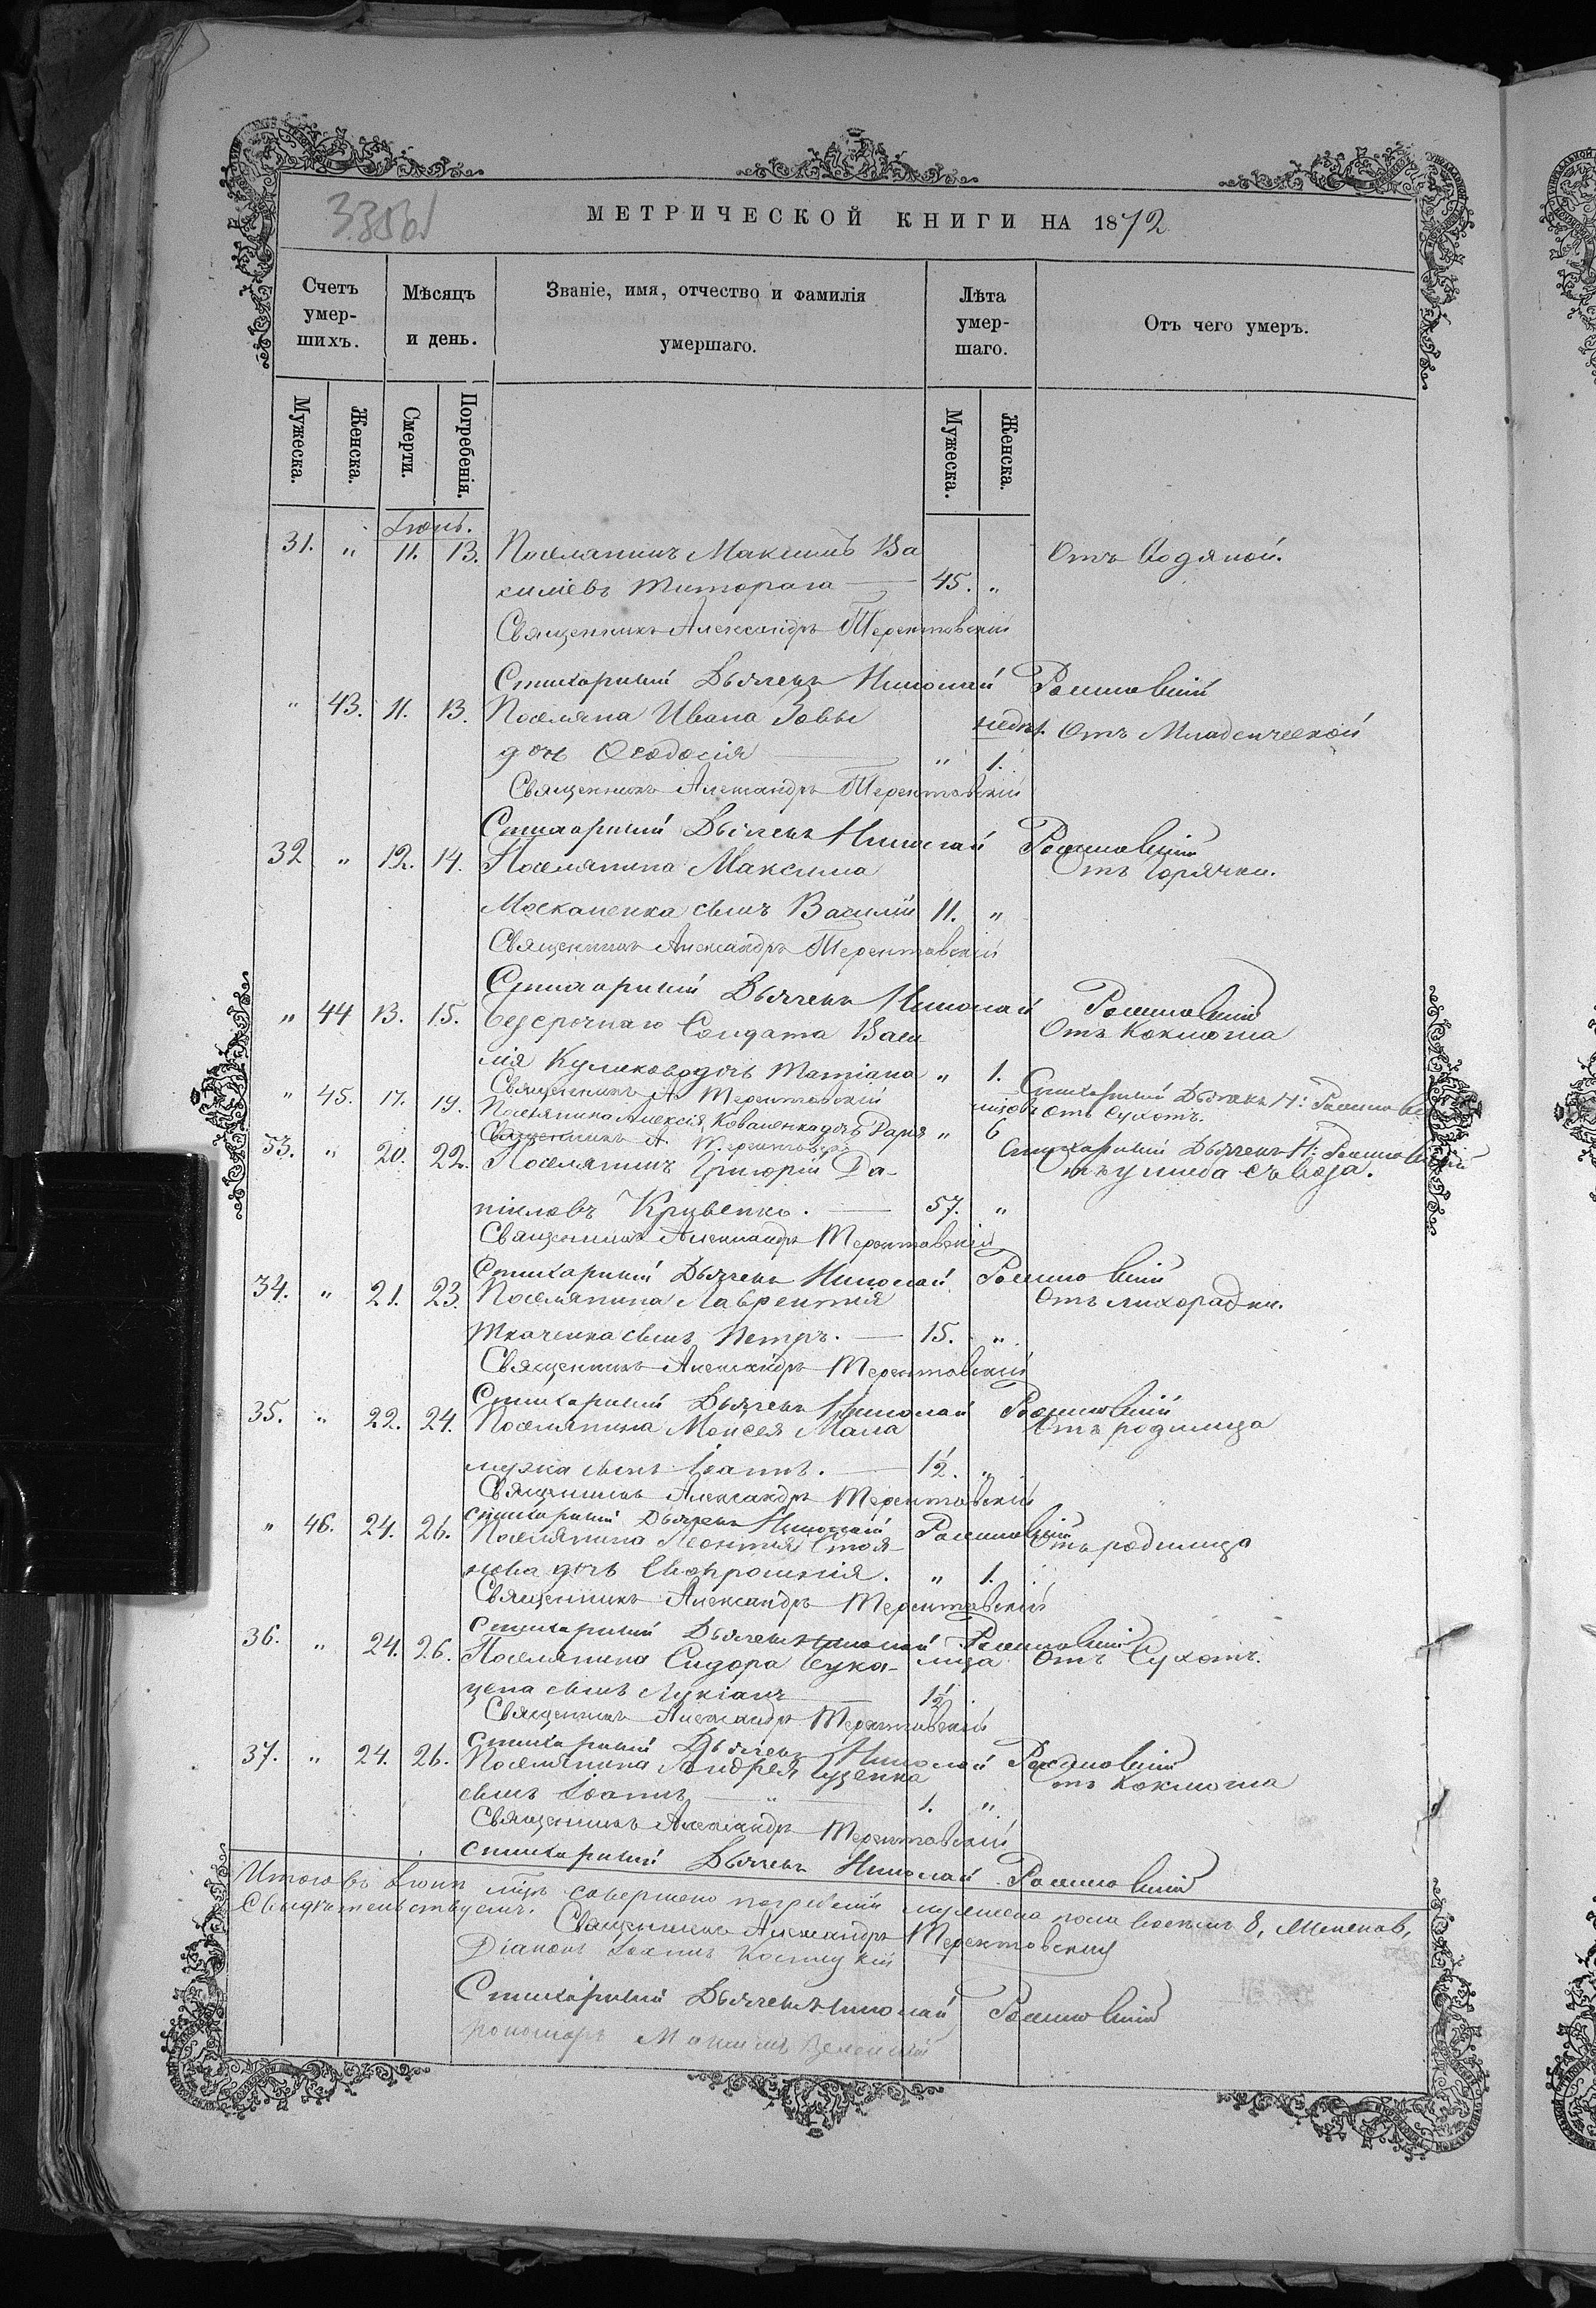 МЕТРИЧЕСКОЙ КНИГИ НА 1872
Счетъ умер-шихъ. Мѣсяцъ и день. Званіе, имя, отчество и фамилія умершаго. Лѣта умер-шаго. Отъ чего умеръ.
Мужеска. Женска. Смерти. Погребенія. Мужеска. Женска.
Іюнь.
31. " 11. 13. Поселянинъ Максимъ Ва Отъ водяной.
силіевъ Титорага 45. "
Священникъ Александръ Терентовскій
Стихарный Дьячекъ Николай
" 43. 11. 13. Поселяна Ивана Зовы недѣл. Отъ Младенческой
дочь Ѳеодосія " 1.
Священникъ Александръ Терентовскій
Стихарный Дьячекъ Николай
32 " 12. 14. Поселянина Максима Отъ горячки.
Москаленка сынъ Василій 11. "
Священникъ Александръ Терентовскій
Стихарный Дьячекъ Николай
" 44 13. 15. безсрочнаго Солдата Васи Отъ Коклюша
лія дочь Татіана " 1.
Священникъ А. Терентовскій Стихарный Дьячекъ Н:
" 45. 17. 19. Поселянина Алексія Коваленка дочь Дарія " 6 Отъ Сухотъ.
Священникъ А. Терентовскій Стихарный Дьячекъ Н:
33. " 20. 22. Поселянинъ Григорій Да- отъ ушиба съ воза.
ніиловъ Кривенко. 57. "
Священникъ Александръ Терентовскій
Стихарный Дьячекъ Николай
34. " 21. 23. Поселянина Лаврентія Отъ лихорадки.
Ткаченка сынъ Петръ. 15. "
Священникъ Александръ Терентовскій
Стихарный Дьячекъ Николай
35. " 22. 24. Поселянина Моисея Мала Отъ родимца
сынъ Іоаннъ. 1½. "
Священникъ Александръ Терентовскій
Стихарный Дьячекъ Николай
" 46. 24. 26. Поселянина Леонтія Стоя- Отъ родимца
нова дочь Евфросинія. " 1.
Священникъ Александръ Терентовскій
Стихарный Дьячекъ Николай
36. " 24. 26. Поселянина Сидора Отъ Сухотъ.
сынъ Лукіанъ 1½.
Священникъ Александръ Терентовскій
Стихарный Дьячекъ Николай
37. " 24. 26. Поселянина Андрея Гуценка Отъ Коклюша
сынъ Іоаннъ " 1. "
Священникъ Александръ Терентовскій
Стихарный Дьячекъ Николай
Итого въ Іюнѣ м͠цѣ совершено погребеній мужеска пола восемь 8,
Свидѣтельствуемъ.
Священникъ Александръ Терентовскій
Діаконъ Іоаннъ
Стихарный Дьячекъ Николай